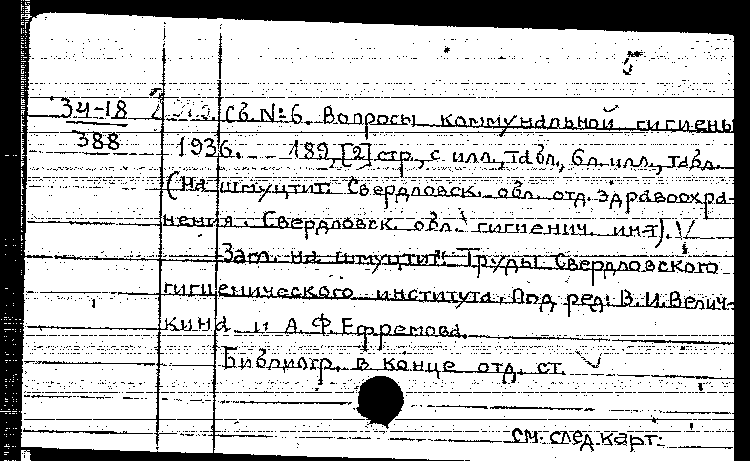 5
34-18 Сб. №6. Вопросы коммунальной гигиены
388 1936. 189, [2] стр., с илл., табл., 6 л. илл., табл.
(На шмуцтит: Свердловск. обл. отд. здравоохра-
нения. Свердловск. обл. гигиенич. ин-т).
Загл. на шмуцтит: Труды Свердловского
гигиенического института. Под ред: В. И. Велич-
кина и А. Ф. Ефремова.
Библиогр. в конце отд. ст.
см. след. карт.